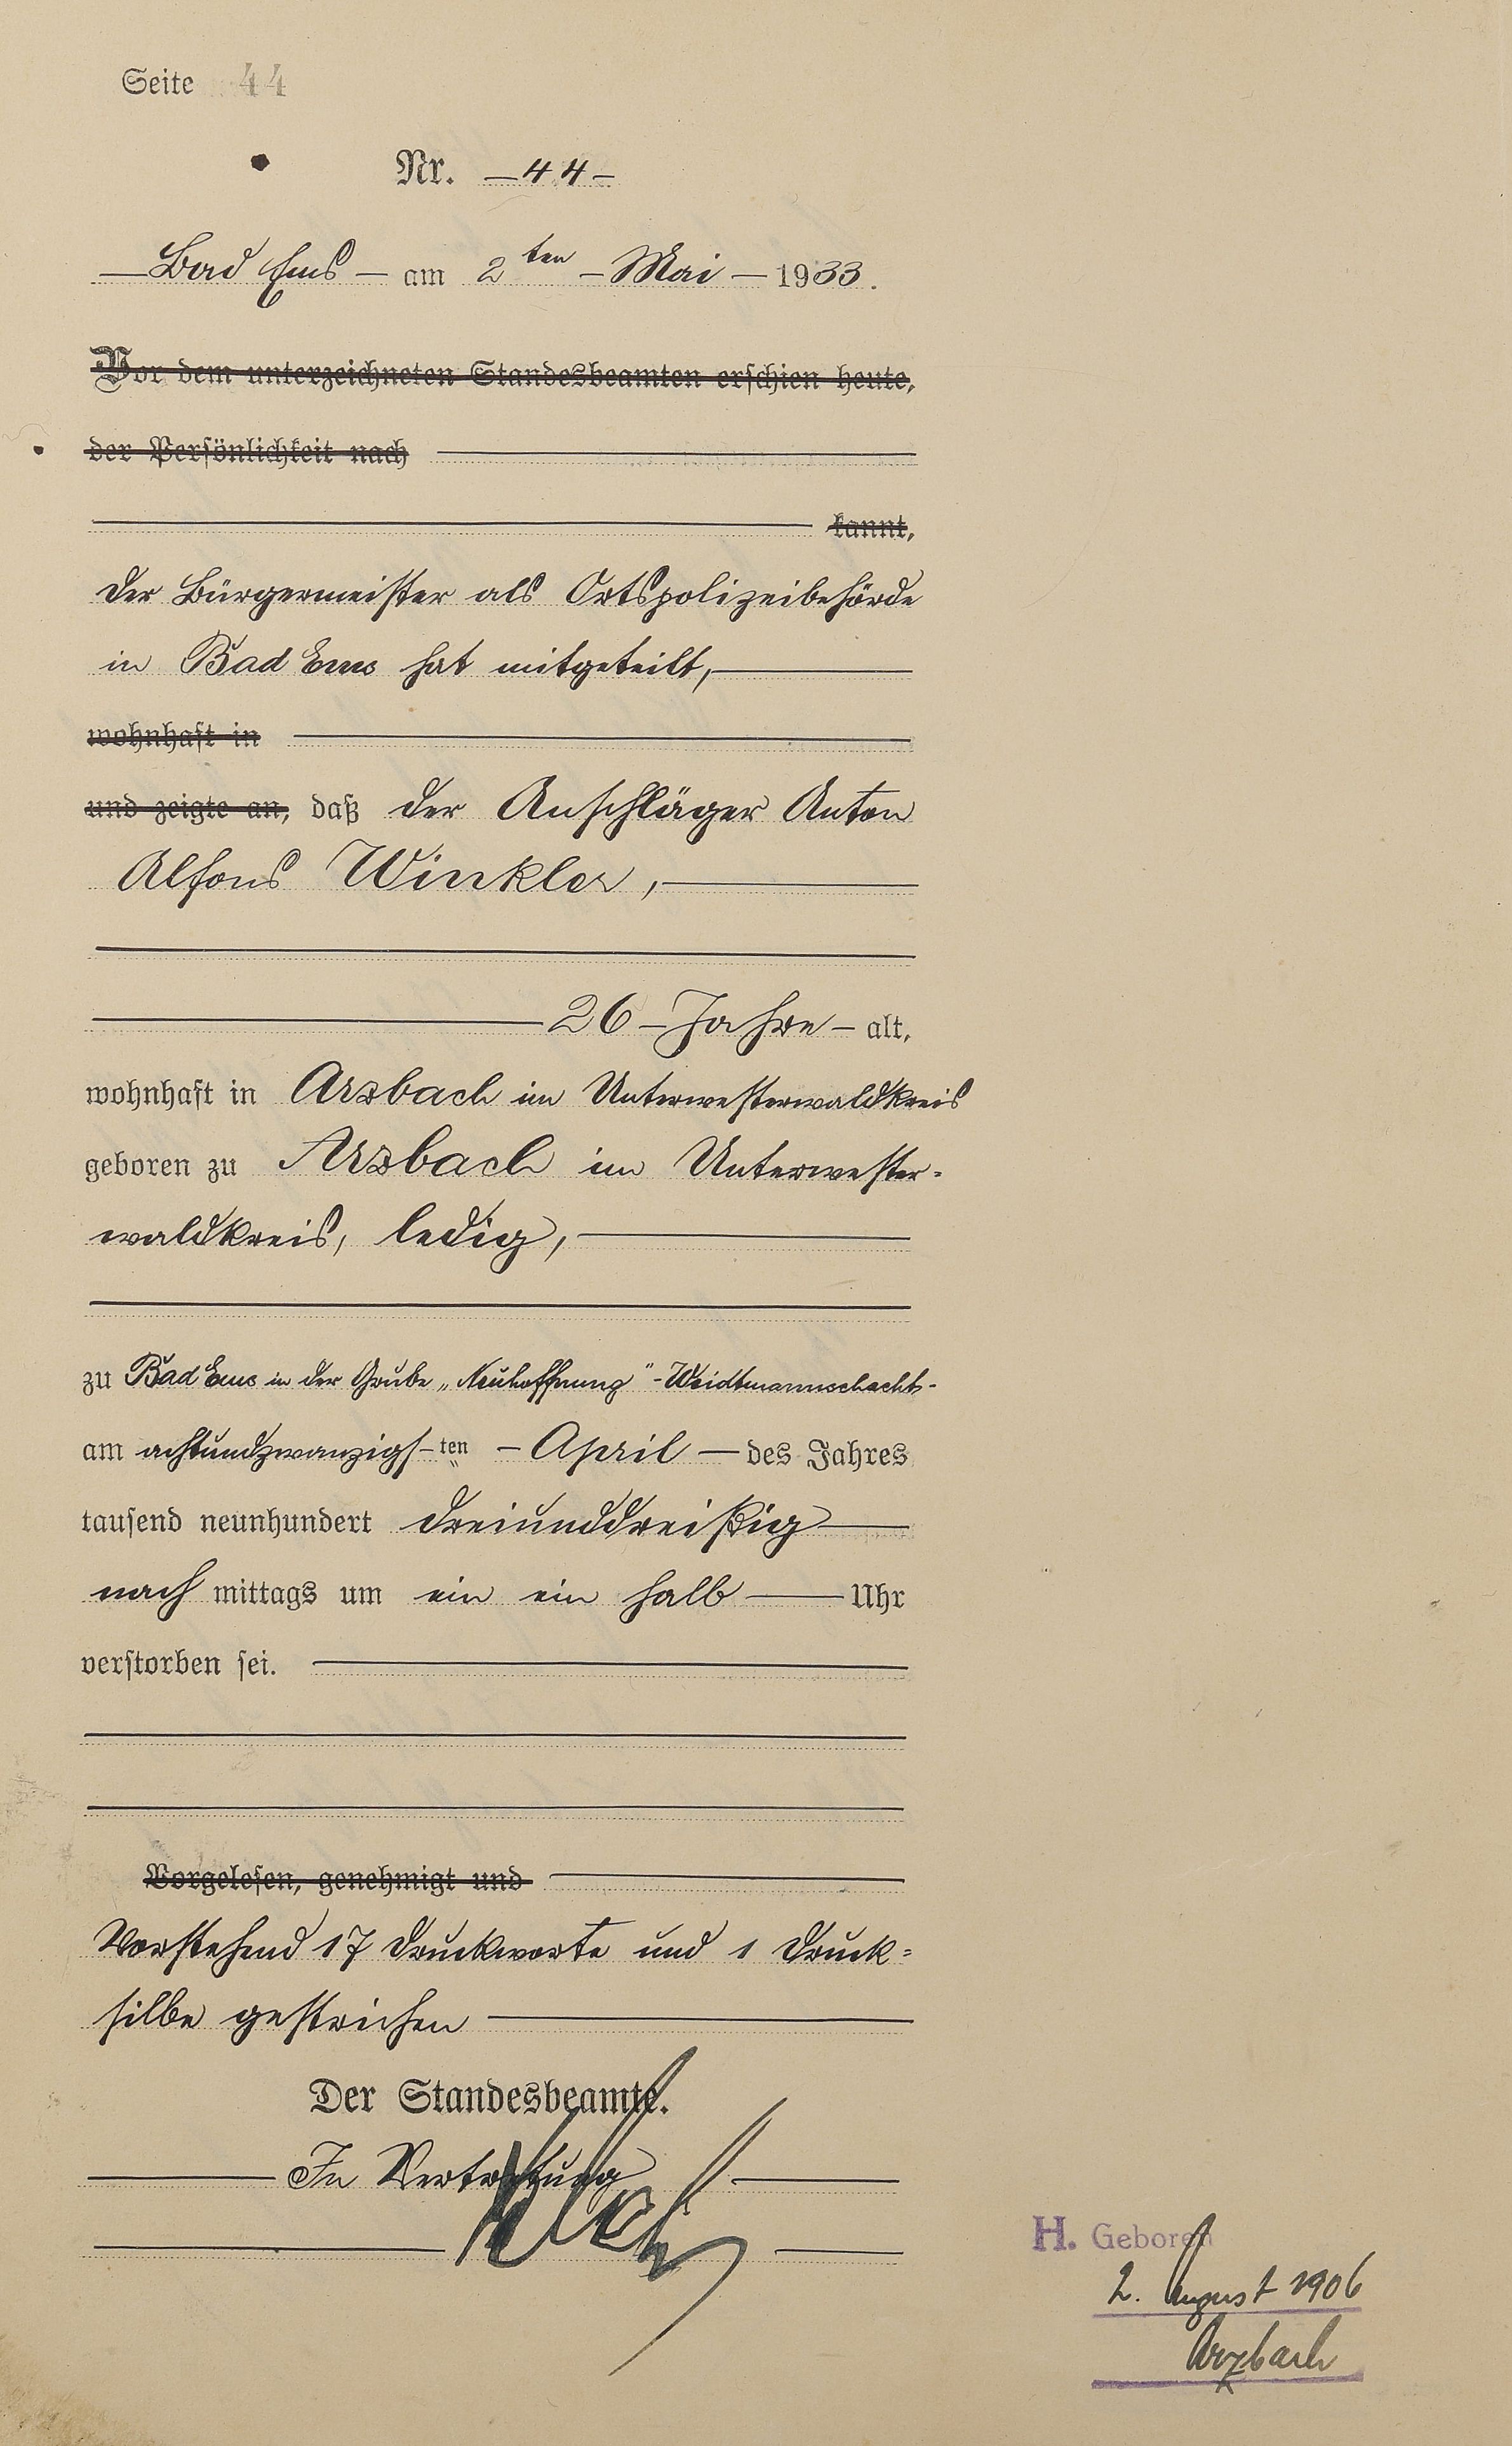 Seite 44
Nr. — 44 —
— Bad Ems — am 2ten — Mai — 1933.
Vor dem unterzeichneten Standesbeamten erschien heute,
der Persönlichkeit nach
kannt,
Der Bürgermeister als Ortspolizeibehörde
in Bad Ems hat mitgeteilt,
wohnhaft in
und zeigte an, daß der Anschläger Anton
Alfons Winkler,
26 — Jahre — alt,
wohnhaft in Arzbach im Unterwesterwaldkreis
geboren zu Arzbach im Unterwester-
waldkreis, ledig,
zu Bad Ems in der Grube „Neuhoffnung" - Weidtmannschacht -
am achtundzwanzigs-ten — April — des Jahres
tausend neunhundert dreiunddreißig
nach mittags um ein ein halb — Uhr
verstorben sei.
Vorgelesen, genehmigt und
Vorstehend 17 Druckworte und 1 Druck-
silbe gestrichen
Der Standesbeamte.
In Vertretung
H. Geboren
2. August 1906
Arzbach